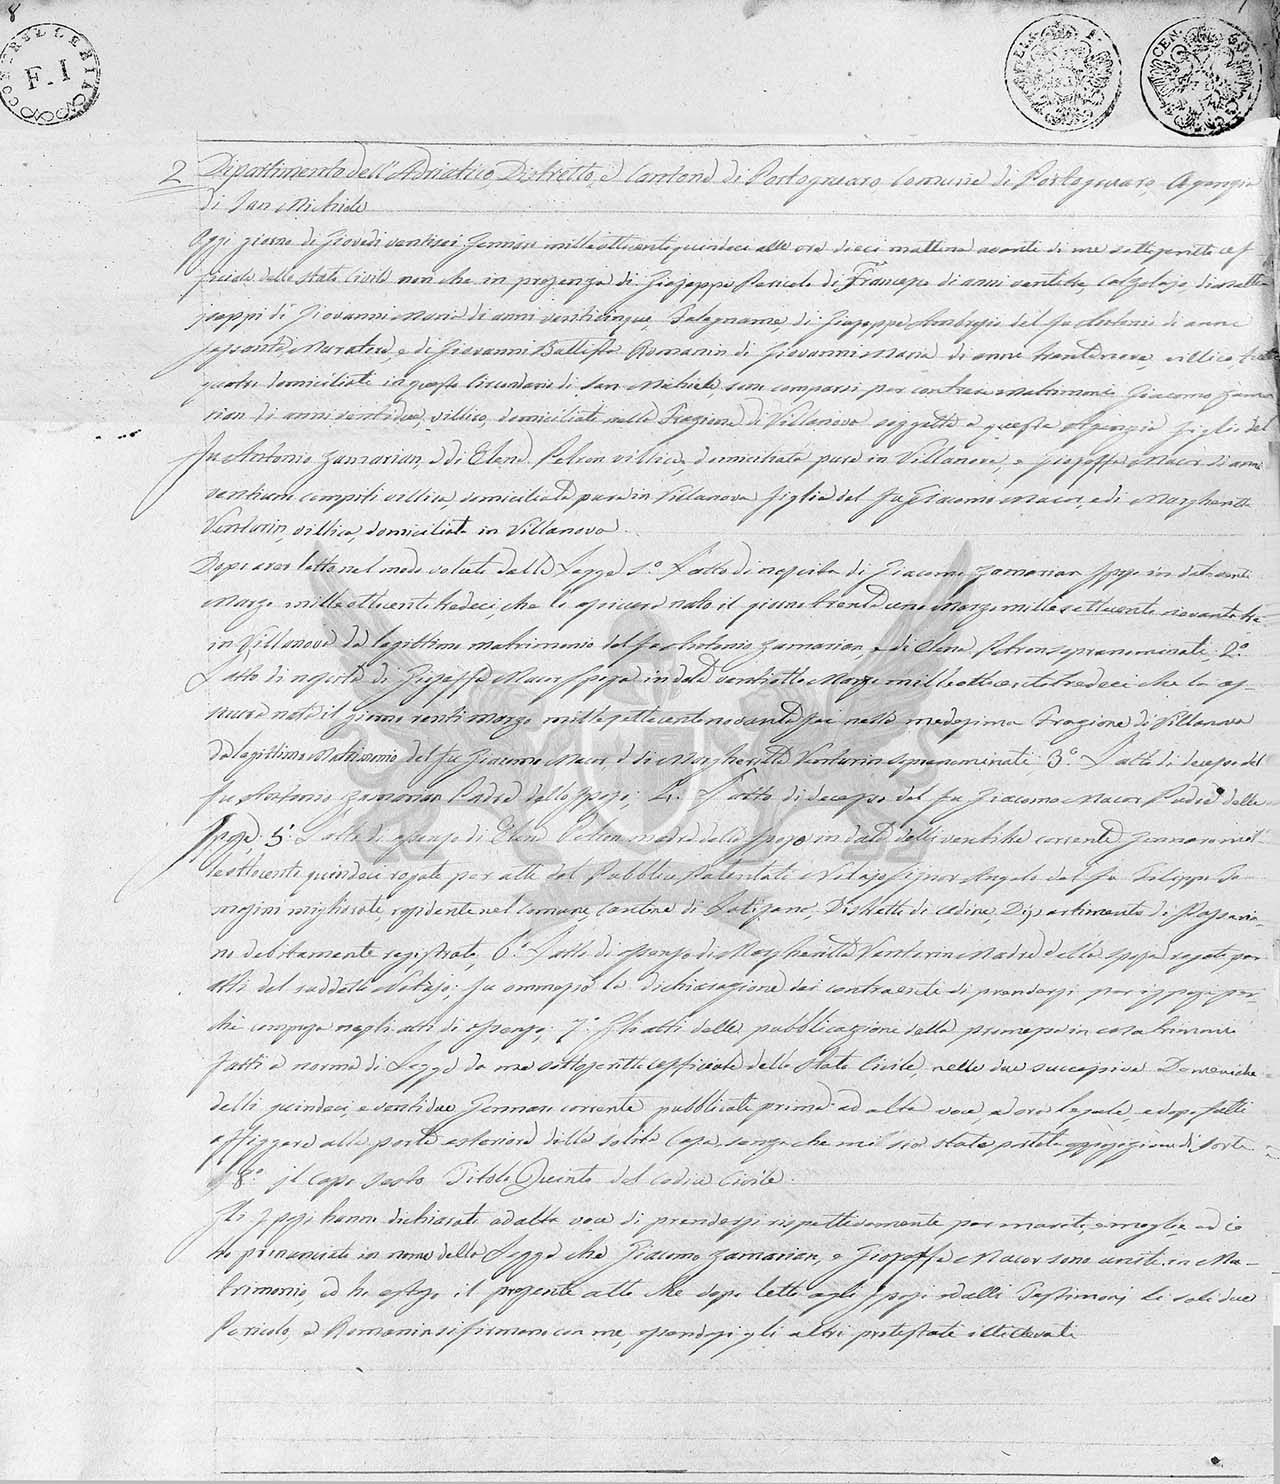 8
CONTROLLERIA
F.1
CEN. 60
2 Dipartimento dell'Adriatico, Distretto, e Cantone di Portogruaro Comune di Portogruaro, Agenzia
di San Michiele
Oggi giorno di Giovedì ventisei Gennaro milleottocentoquindeci alle ore dieci mattina avante di me sottoscritto Uf-
ficiale dello Stato Civile non che in presenza di Giuseppe Pericolo di Francesco di anni ventitre, Calzolajo,
di Giovanni Maria di anni venticinque, Falegname, di Giuseppe Ambrosio del fu Antonio di anni
sessanta Muratore, e di Giovanni Battista Romanin di Giovanni Maria di anni trentanove, villico, tutti
quatro domiciliati in questo Circondario di San Michiele, son comparsi per contraere matrimonio Giacomo Zama-
rian di anni ventidue, villico, domiciliato nella Frazione di Villanova soggetta a questa Agenzia figlio del
fu Antonio Zamarian, e di Elena Petron villica, domiciliata pure in Villanova, e Gioseffa Macor di anni
ventiuno compiti villica, domiciliata pure in Villanova figlia del fu Giacomo Macor, e di Margherita
Venturin, villica, domiciliata in Villanova
Dopo aver letto nel modo voluto dalla Legge 1.° L'atto di nascita di Giacomo Zamarian sposo in data venti
Marzo milleottocento tredeci, che lo assicura nato il giorno trenta uno Marzo millesettecento novanta tre
in Villanova da legittimo matrimonio del fu Antonio Zamarian, e di Elena Petron sopranominati; 2.°
L'atto di nascita di Gioseffa Macor sposa in data ventiotto Marzo milleottocentotredeci che la as-
sicura nata il giorno venti marzo millesettecentonovanta tre nella medesima Frazione di Villanova
da legittimo Matrimonio del fu Giacomo Macor, e di Margherita Venturin sopranominati; 3.° L'atto di decesso del
fu Antonio Zamarian Padre dello sposo; 4.° L'atto di decesso del fu Giacomo Macor Padre della
sposa; 5.° L'atto di assenso di Elena Petron madre dello sposo in data delli ventitre corrente Gennaro mil-
leottocento quindeci rogato per atti del Pubblico Patentato Notajo Signor Angelo del fu Filippo
residente nel Comune, Cantone di Latisana, Distretto di Udine, Dipartimento di Passaria-
no debitamente registrato, 6.° L'atto di assenso di Margherita Venturin Madre della sposa rogato per
atti del suddetto Notajo; fu ommessa la dichiarazione dei contraenti di prendersi per isposi per-
chè compresa negli atti di assenso; 7.° Gli atti delle pubblicazione della promessa in matrimonio
fatti a norma di Legge da me sottoscritto Ufficiale dello Stato Civile, nelle due successive Domeniche
delli quindeci, e ventidue Gennaro corrente pubblicate prima ad alta voce ad ora legale, e dopo fatti
affiggere alla porta esteriore della solita Casa, senza che mi sia stata portata opposizione di sorte
8.° il Capo Sesto Titolo Quinto del Codice Civile.
Gli sposi hanno dichiarato ad alta voce di prendersi rispettivamente per marito, e moglie, ed io
ho pronunciato in nome della Legge che Giacomo Zamarian, e Gioseffa Macor sono uniti in Ma-
trimonio, ed ho esteso il presente atto che dopo letto agli sposi ed alli Testimonj li soli due
Pericolo, e Romanin si firmano con me, essendosi gli altri protestati illetterati